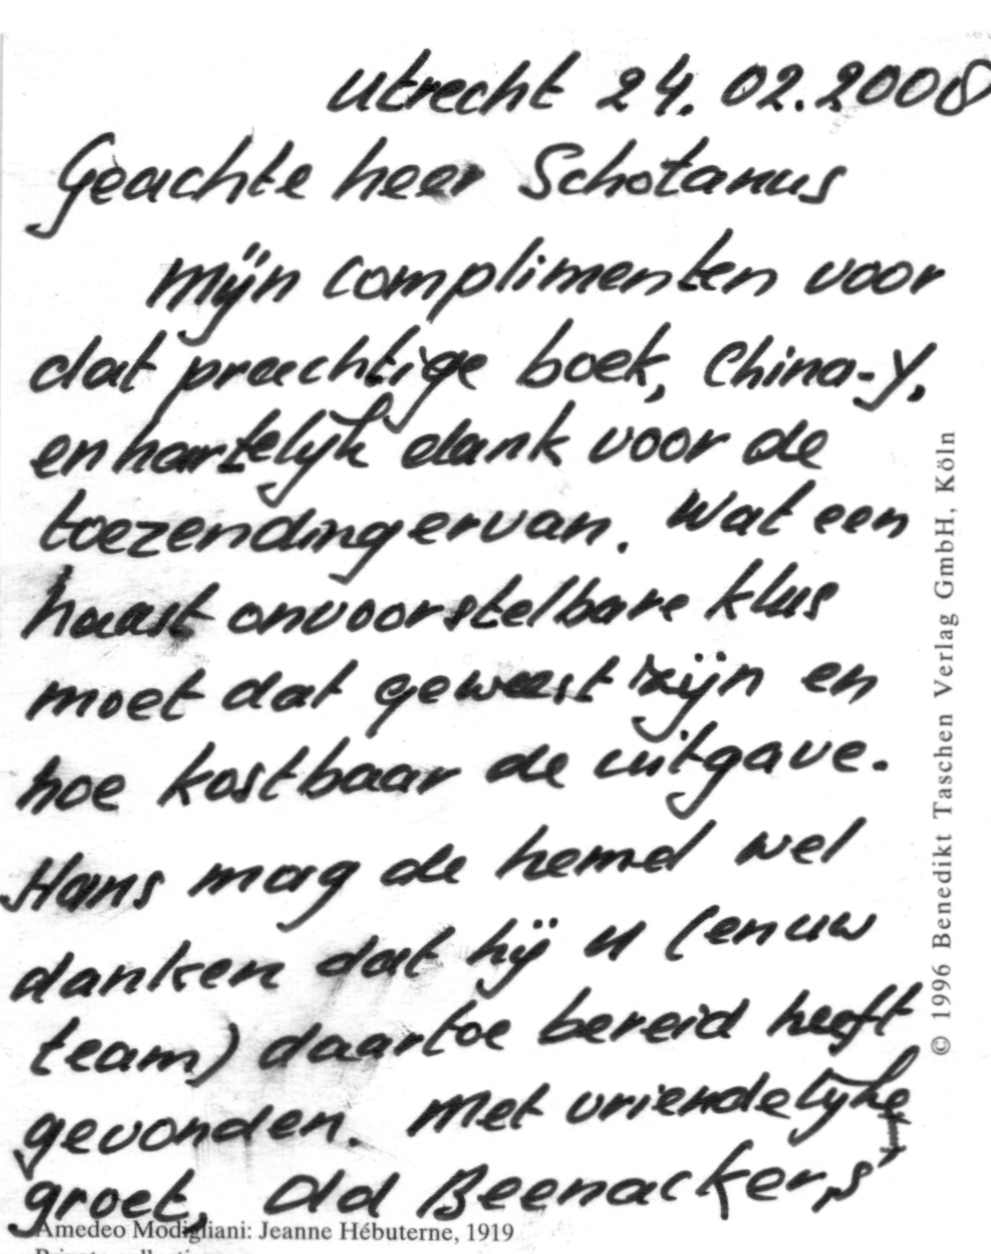 Utrecht 24.02.2008
Geachte heer Schotanus
Mijn complimenten voor
dat prachtige boek, China-Y,
en hartelijk dank voor de
toezending ervan. Wat een
haast onvoorstelbare klus
moet dat geweest zijn en
hoe kostbaar de uitgave.
Hans mag de hemel wel
danken dat hij u (en uw
team) daartoe bereid heeft
gevonden. Met vriendelijke
groet, Beenackers
Amedeo Modigliani: Jeanne Hébuterne, 1919
© 1996 Benedikt Taschen Verlag GmbH, Köln